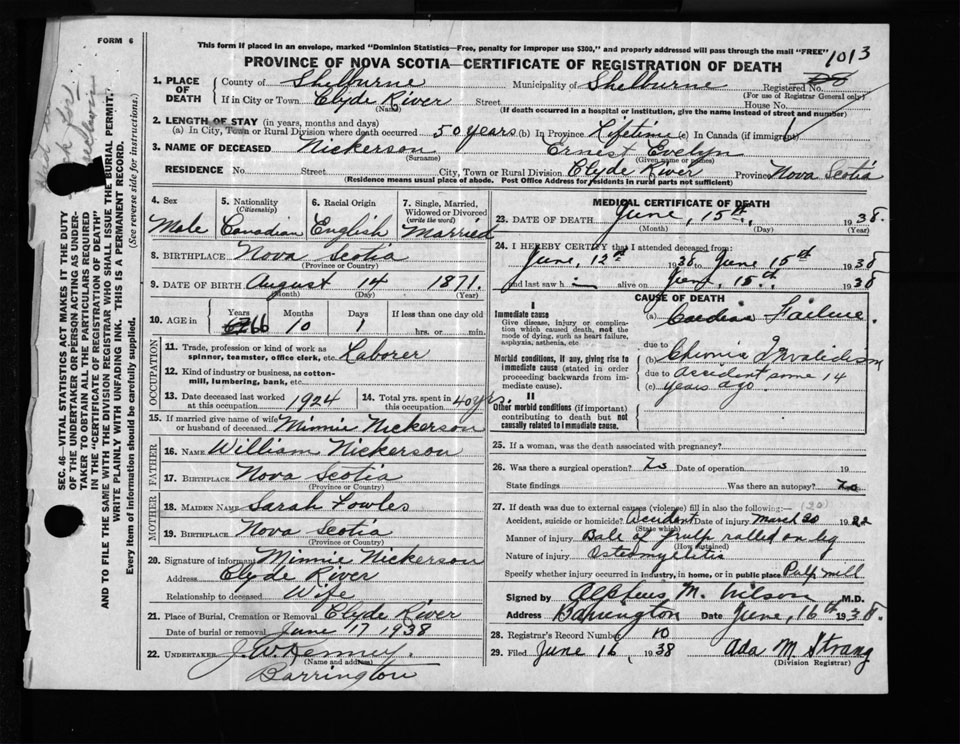 FORM 6
This form if placed in an envelope, marked "Dominion Statistics—Free, penalty for improper use $300," and properly addressed will pass through the mail "FREE"
1013
PROVINCE OF NOVA SCOTIA—CERTIFICATE OF REGISTRATION OF DEATH
1. PLACE OF DEATH County of Shelburne Municipality of Shelburne Registered No.
(For use of Registrar General only)
If in City or Town Clyde River Street House No.
(Name) (If death occurred in a hospital or institution, give the name instead of street and number)
2. LENGTH OF STAY (in years, months and days)
(a) In City, Town or Rural Division where death occurred 50 years (b) In Province Lifetime (c) In Canada (if immigrant)
3. NAME OF DECEASED Nickerson Ernest Evelyn
(Surname) (Given name or names)
RESIDENCE No. Street City, Town or Rural Division Clyde River Province Nova Scotia
(Residence means usual place of abode. Post Office Address for residents in rural parts not sufficient)
4. Sex 5. Nationality (Citizenship) 6. Racial Origin 7. Single, Married, Widowed or Divorced (write the word)
Male Canadian English Married
8. BIRTHPLACE Nova Scotia
(Province or Country)
9. DATE OF BIRTH August 14 1871.
(Month) (Day) (Year)
10. AGE in Years Months Days If less than one day old
66 10 1 hrs. or min.
OCCUPATION
11. Trade, profession or kind of work as spinner, teamster, office clerk, etc. Laborer
12. Kind of industry or business, as cotton-mill, lumbering, bank, etc.
13. Date deceased last worked at this occupation 1924 14. Total yrs. spent in this occupation 40 yrs.
15. If married give name of wife or husband of deceased Minnie Nickerson
FATHER
16. NAME William Nickerson
17. BIRTHPLACE Nova Scotia
(Province or Country)
MOTHER
18. MAIDEN NAME Sarah Fowles
19. BIRTHPLACE Nova Scotia
(Province or Country)
20. Signature of informant Minnie Nickerson
Address Clyde River
Relationship to deceased Wife
21. Place of Burial, Cremation or Removal Clyde River
Date of burial or removal June 17 1938
22. UNDERTAKER J. W. Kenney.
(Name and address)
Barrington
MEDICAL CERTIFICATE OF DEATH
23. DATE OF DEATH June, 15th, 1938.
(Month) (Day) (Year)
24. I HEREBY CERTIFY that I attended deceased from:
June, 12th 1938 to June 15th 1938
and last saw h im alive on June, 15th, 1938
CAUSE OF DEATH
I
Immediate cause
Give disease, injury or complication which caused death, not the mode of dying, such as heart failure, asphyxia, asthenia, etc.
(a) Cardiac Failure.
due to
Morbid conditions, if any, giving rise to immediate cause (stated in order proceeding backwards from immediate cause).
(b) Chronic Invalidism
due to accident some 14
(c) years ago
II
Other morbid conditions (if important) contributing to death but not causally related to immediate cause.
25. If a woman, was the death associated with pregnancy?
26. Was there a surgical operation? No Date of operation 19
State findings Was there an autopsy? No
27. If death was due to external causes (violence) fill in also the following:
(20)
Accident, suicide or homicide? Accident Date of injury March 20 1922
(State which)
Manner of injury Bale of pulp rolled on leg
(How sustained)
Nature of injury Osteomyelitis
Specify whether injury occurred in industry, in home, or in public place Pulp mill
Signed by Alpheus M. Wilson M.D.
Address Barrington Date June, 16th 1938.
28. Registrar's Record Number 10
29. Filed June 16, 1938 Ada M. Strang
(Division Registrar)
SEC. 46—VITAL STATISTICS ACT MAKES IT THE DUTY
OF THE UNDERTAKER OR PERSON ACTING AS UNDER-
TAKER TO OBTAIN ALL THE PARTICULARS REQUIRED
IN THE "CERTIFICATE OF REGISTRATION OF DEATH"
AND TO FILE THE SAME WITH THE DIVISION REGISTRAR WHO SHALL ISSUE THE BURIAL PERMIT.
WRITE PLAINLY WITH UNFADING INK. THIS IS A PERMANENT RECORD.
Every item of information should be carefully supplied. (See reverse side for instructions.)